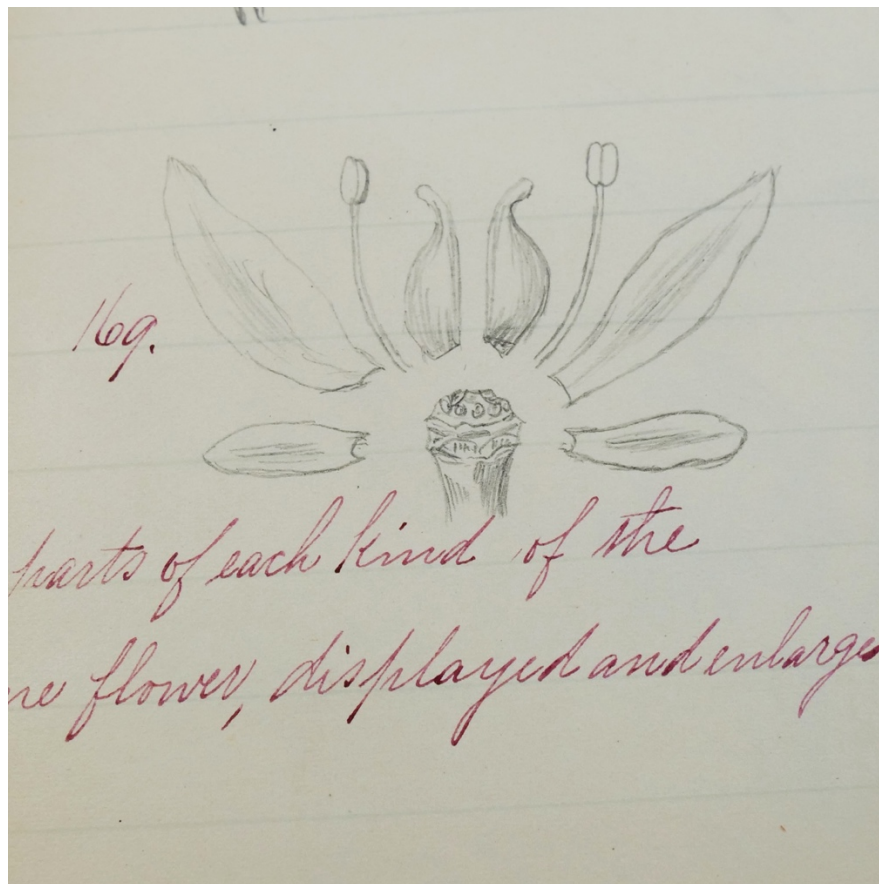 169.
parts of each kind of the
flower, displayed and enlarge